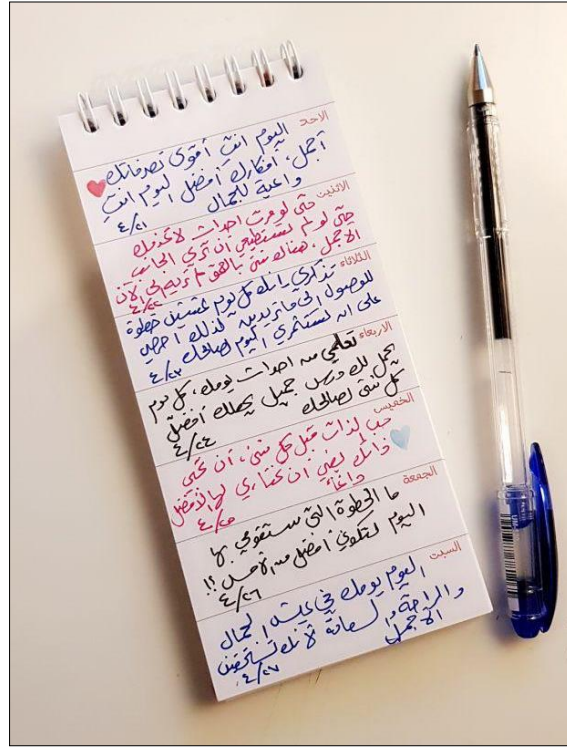 الاحد
اليوم انتِ أقوى تصرفاتك
أجمل، أفكارك أفضل اليوم انتِ
واعية للجمال
٤/٢١
الاثنين
حتى لو مرت احداث لا تحبينها
حتى لو لم تستطيعي أن تري الجانب
الاجمل، هناك شئ بالعمق لم تريه إلى الان
٤/٢٢
الثلاثاء
تذكري انك كل يوم تمشين خطوة
للوصول الى ما تريدين لذلك احرصي
على ان تستثمري اليوم لصالحك
٤/٢٣
الاربعاء
تعلمي من احداث يومك، كل يوم
يحمل لك درس جميل يجعلك أفضل
كل شئ لصالحك
٤/٢٤
الخميس
حب الذات قبل كل شئ، أن تحبي
ذاتك يعني أن تختاري لها الأفضل
دائماً
٤/٢٥
الجمعة
ما الخطوة التي ستقومي بها
اليوم لتكوني أفضل من الأمس !!
٤/٢٦
السبت
اليوم يومك في عيش الجمال
والراحة والسعادة لأنك تستحقين
الاجمل
٤/٢٧